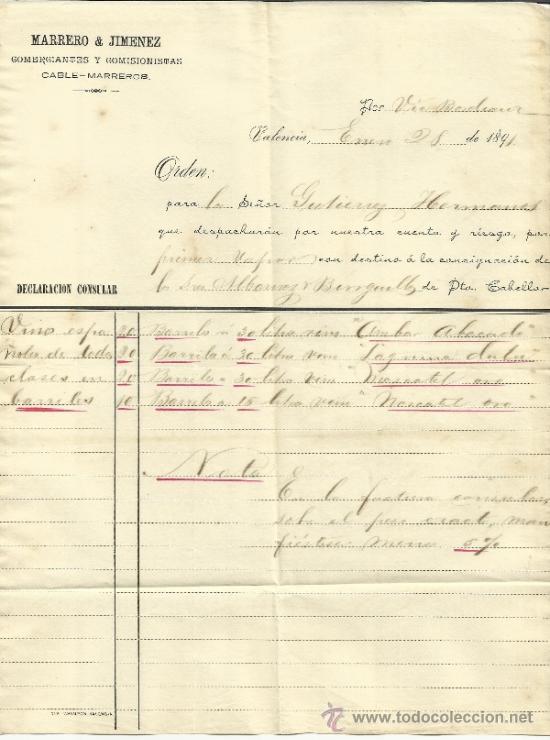 MARRERO & JIMENEZ
COMERCIANTES Y COMISIONISTAS
CABLE-MARREROS.
Por Via Bordeaux
Valencia, Enero 28 de 1891
Orden:
para la Señor Gutierrez Hermanos
que despacharán por nuestra cuenta y riesgo, por
primer Vapor con destino á la consignación de
DECLARACION CONSULAR
de Pto. Cabello.
Vino espa 20 Barriles á 30 litros vino "Ambar Abocado"
ñoles de todas 20 Barriles á 30 litros vino "Lagrima dulce"
clases en 20 Barriles á 30 litros vino "Moscatel oro"
barriles 10 Barriles á 15 litros vino "Moscatel oro"
Nota
En la factura consular,
sobre el peso exacto, man
menos 5%
todocoleccion
www.todocoleccion.net